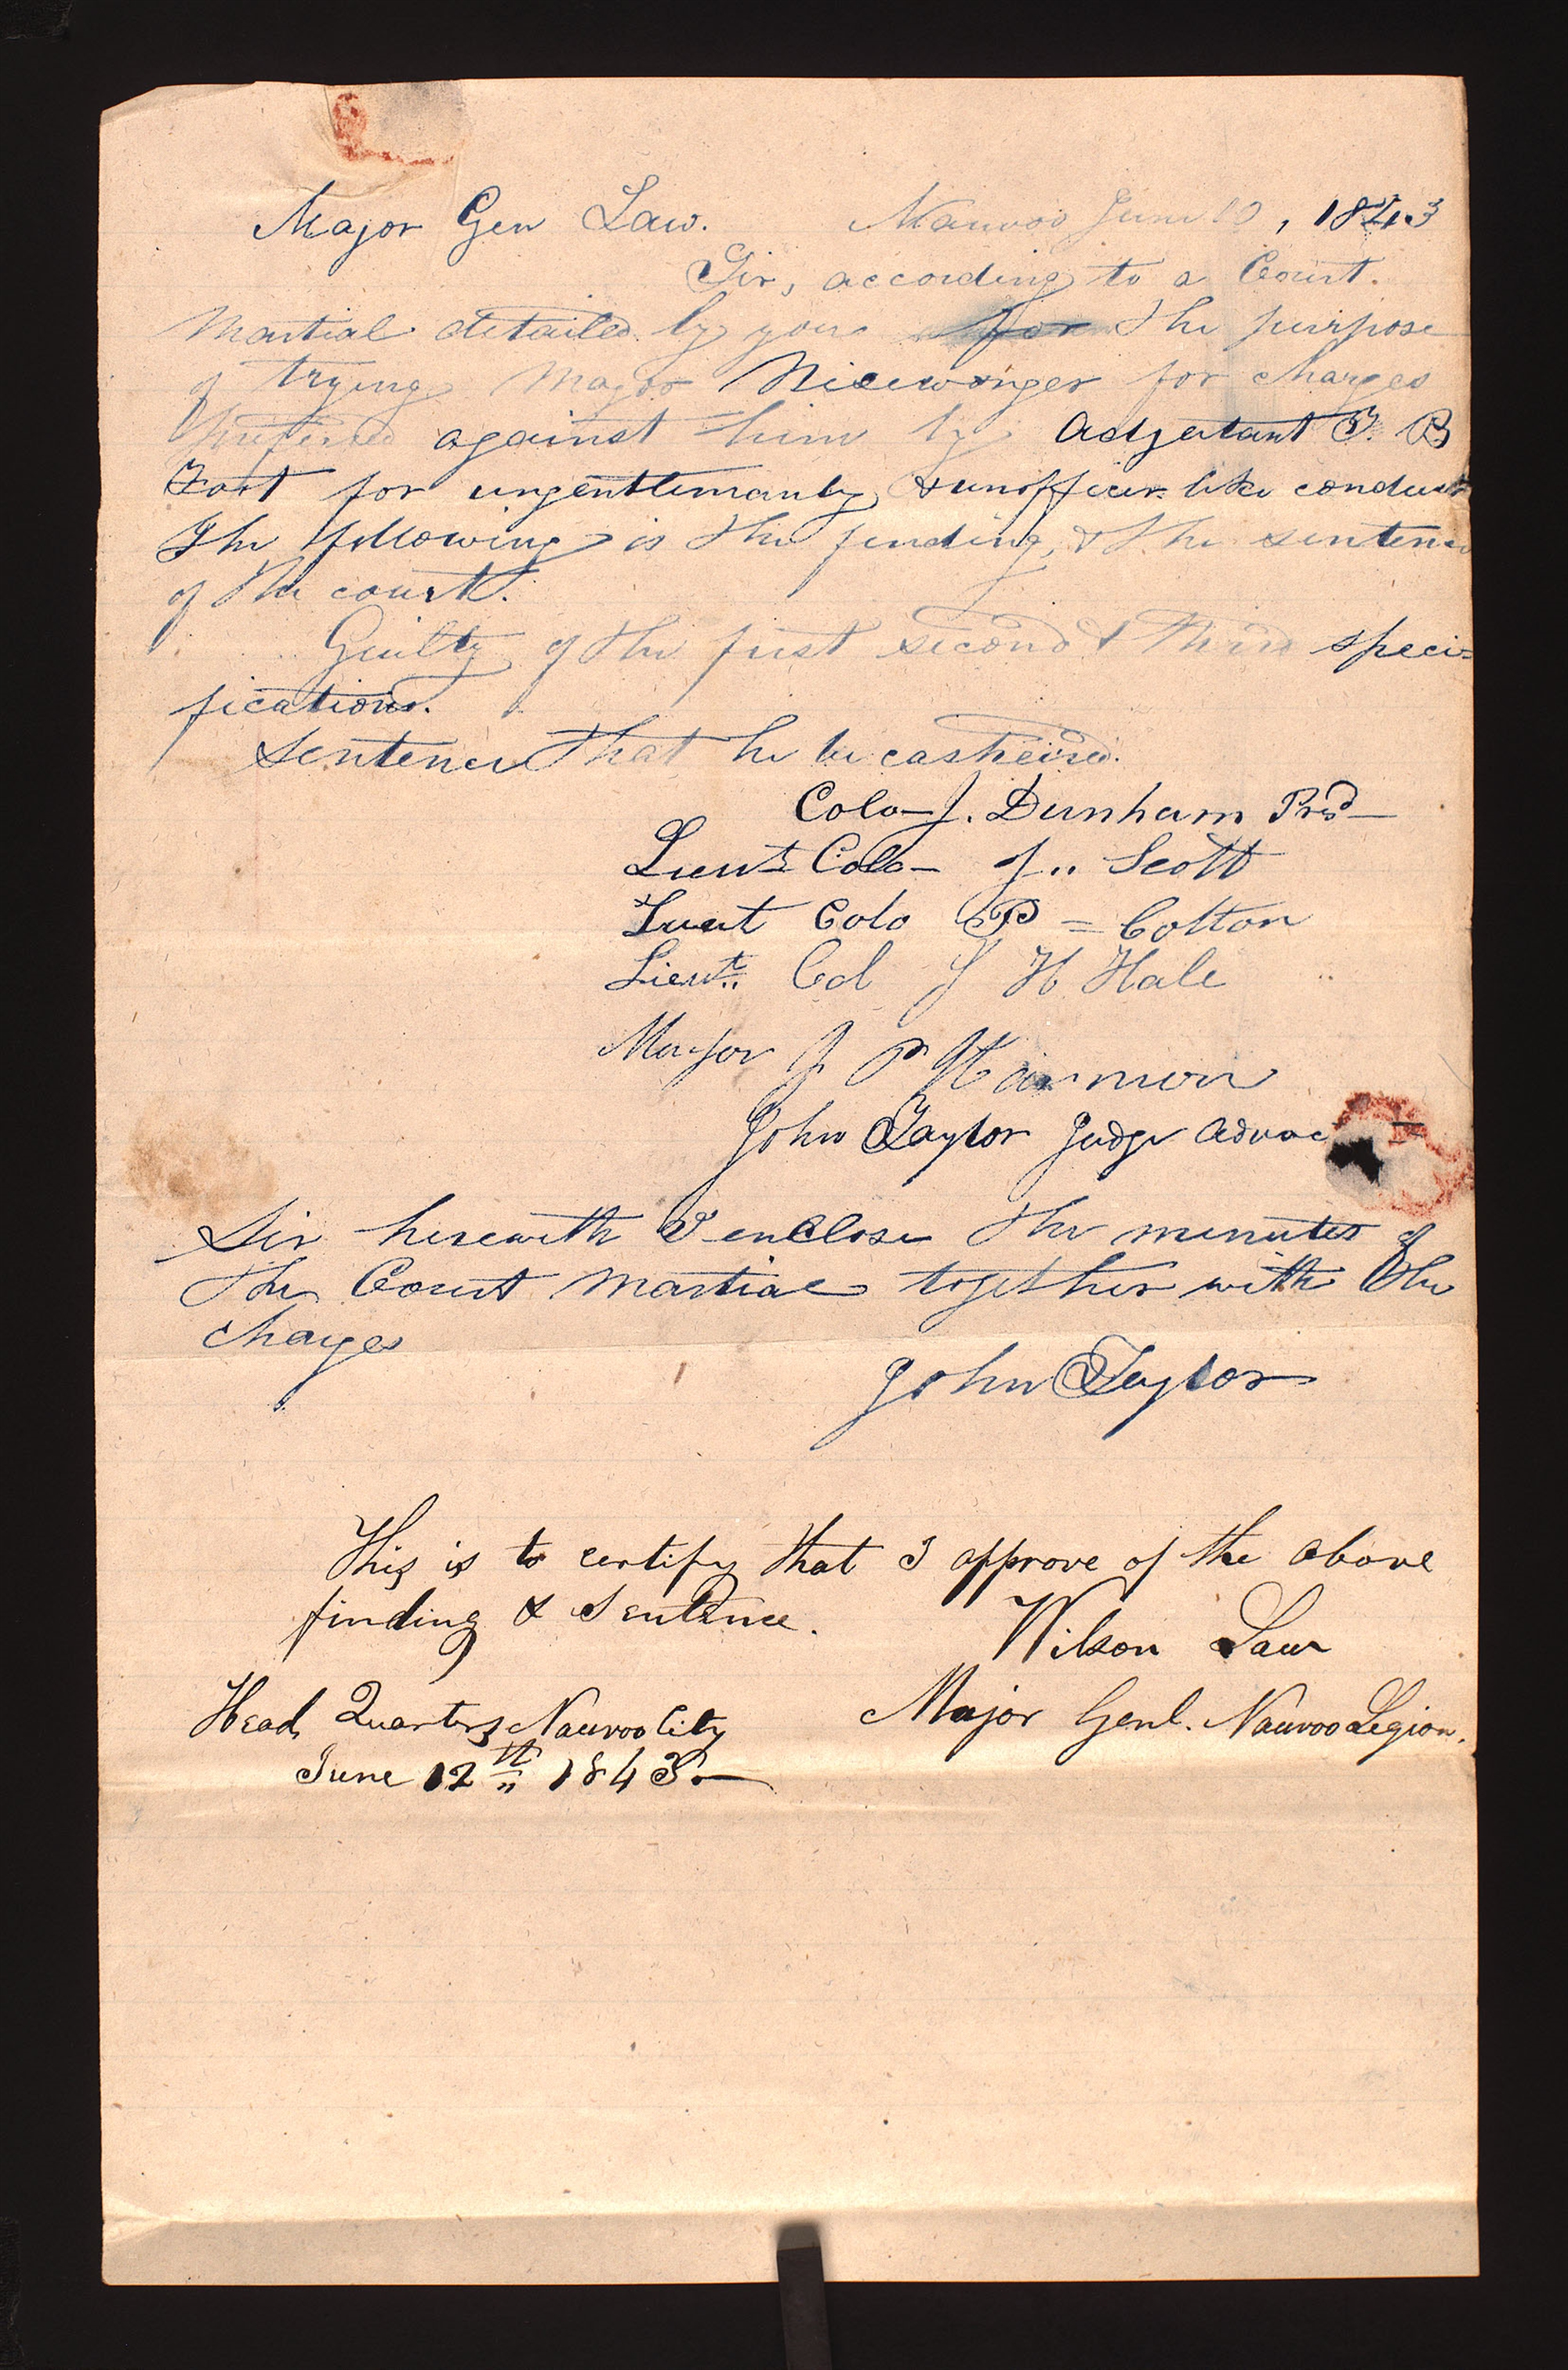 Major Gen Law. Nauvoo June 10, 1843
Sir, according to a Court.
Martial detailed by you for the purpose
of trying Major Nicewonger for charges
preferred against him by Adjutant T. B
Foot for ungentlemanly & unofficer like conduct
The following is the finding, & the sentence
of the court.
Guilty of the first second & third speci=
fications.
Sentence that he be casheired.
Colo J. Dunham Prsd
Lieut Colo J.. Scott
Lieut Colo P = Colton
Lieut.. Col J H Hale
Major J P Harmon
John Taylor Judge Advoc
Sir herewith I enclose the minutes of
the Court Martial together with the
charges
John Taylor
This is to certify that I approve of the above
finding & Sentence.
Wilson Law
Head Quarters Nauvoo City Major Genl. Nauvoo Legion.
June 12th 1843.